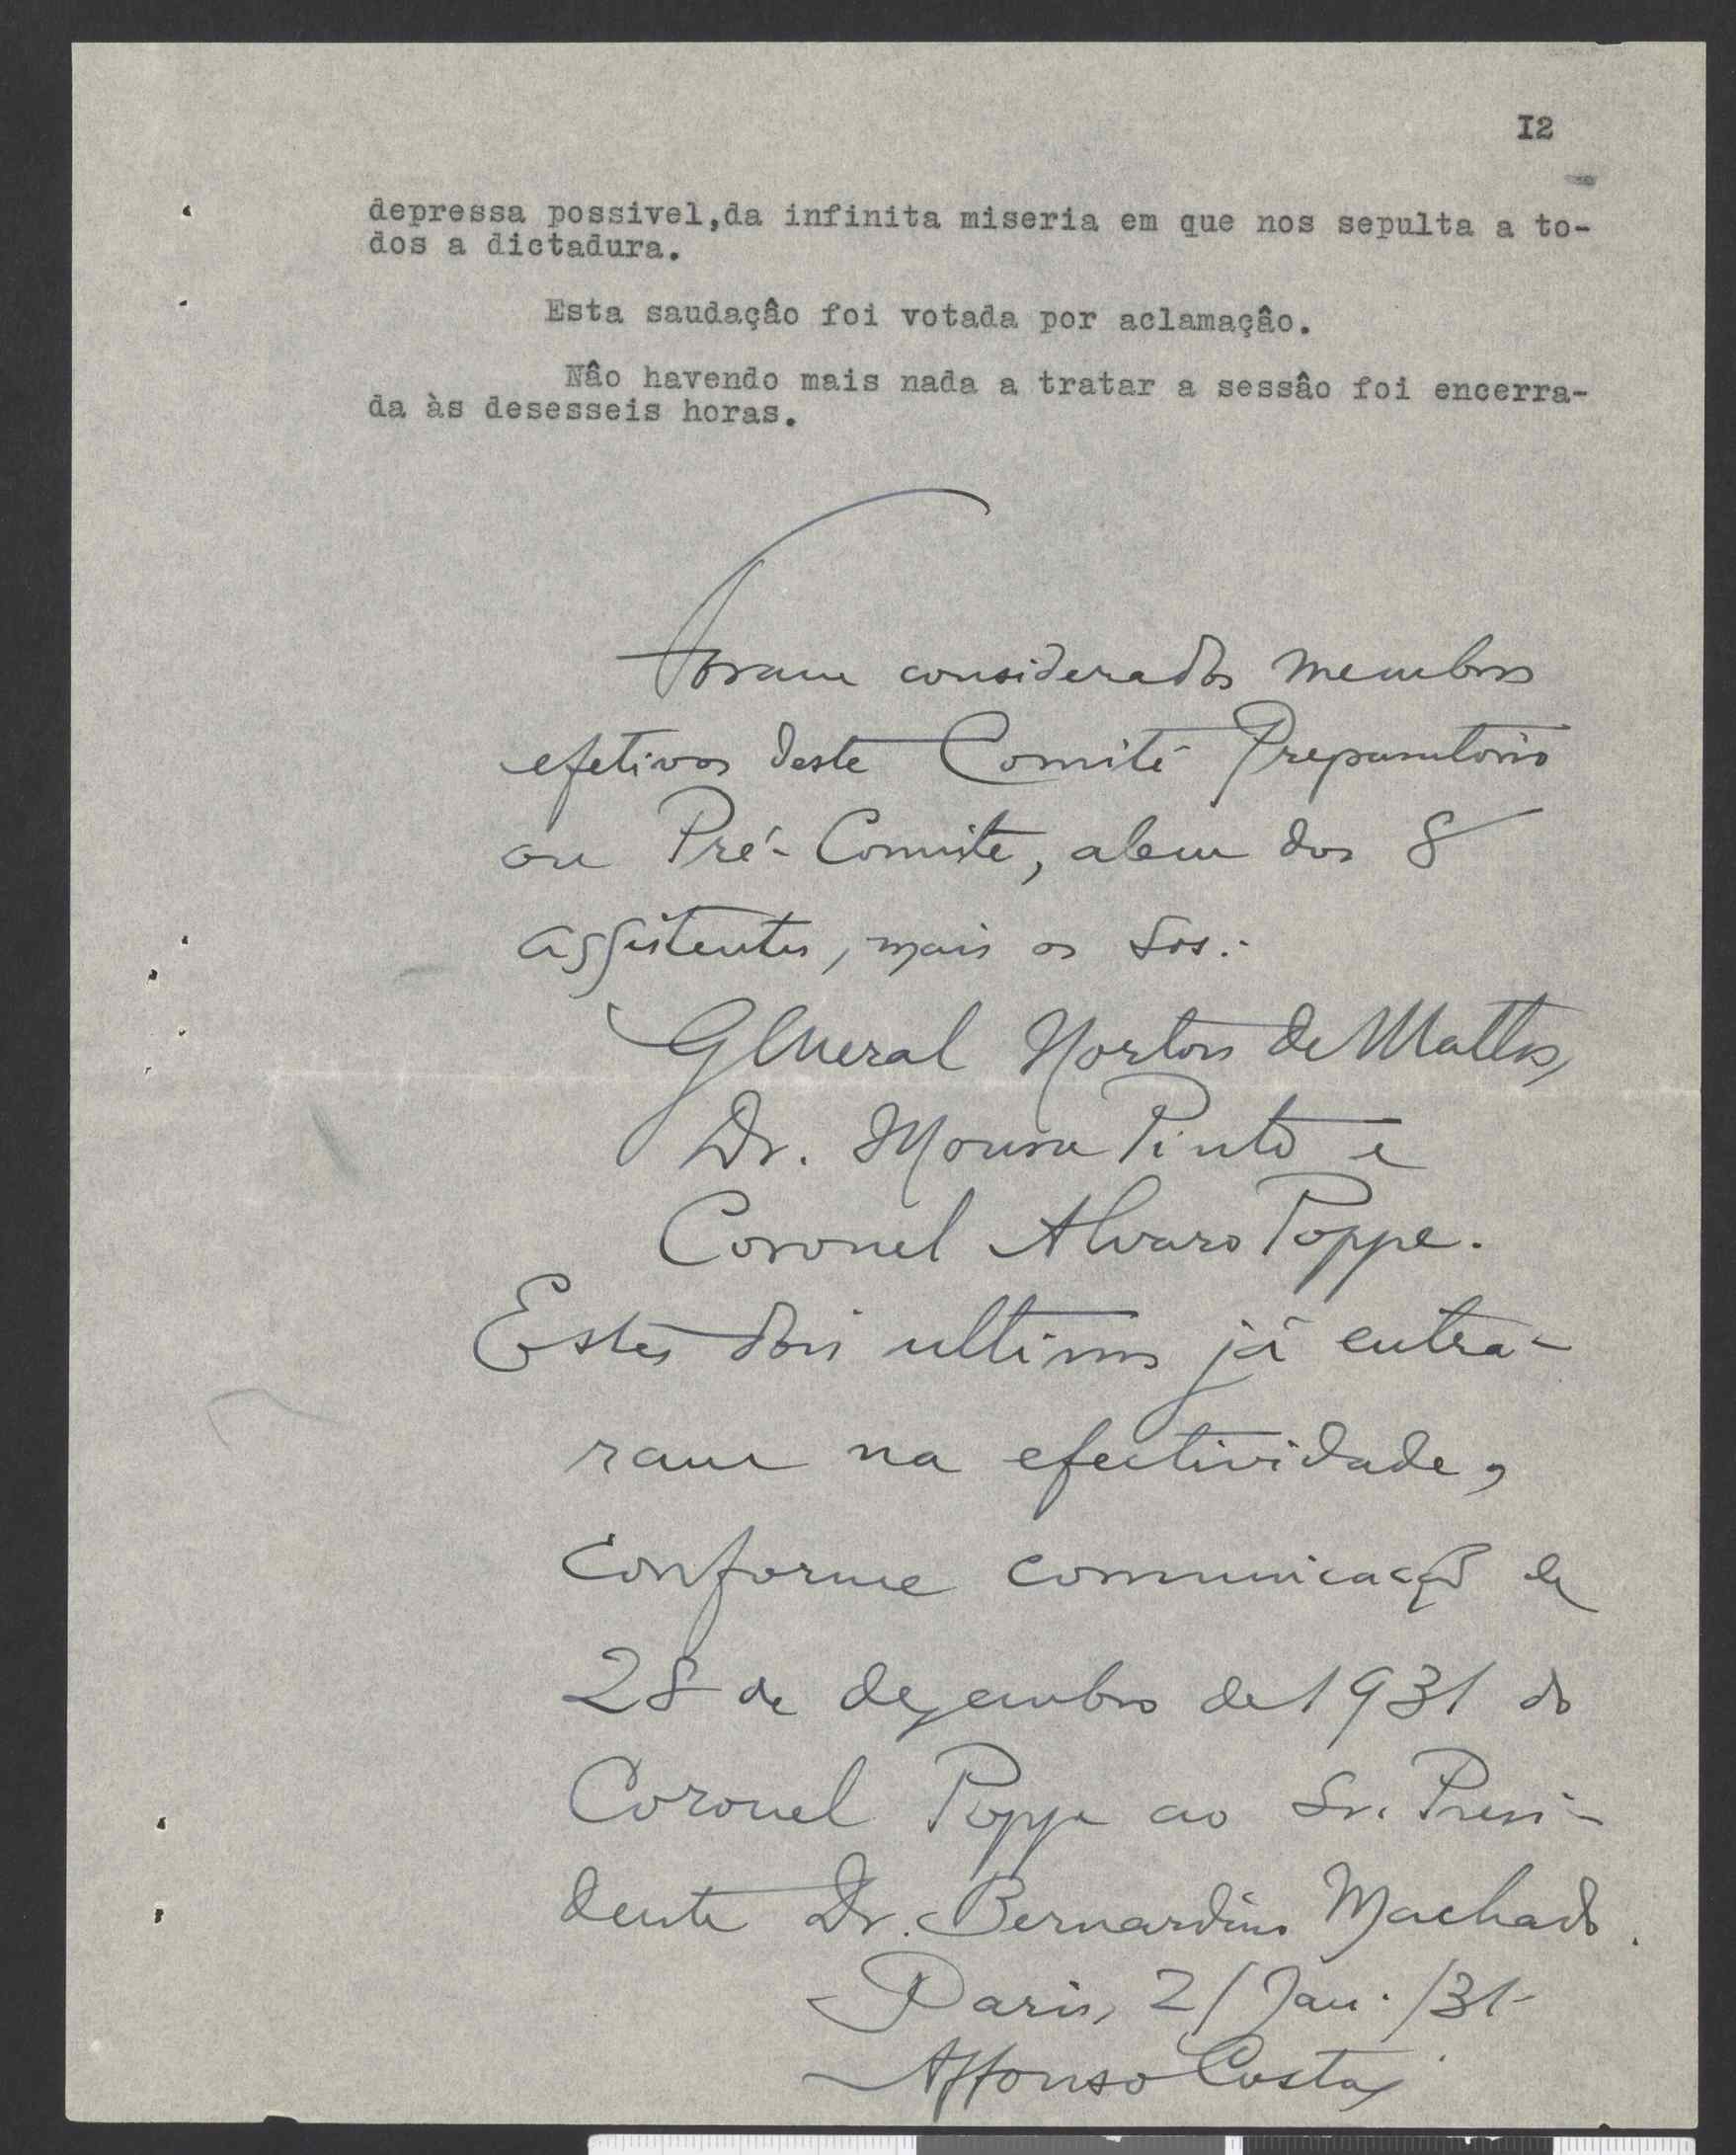 I2
depressa possivel,da infinita miseria em que nos sepulta a to-
dos a dictadura.
Esta saudaçâo foi votada por aclamaçâo.
Nâo havendo mais nada a tratar a sessâo foi encerra-
da às desesseis horas.
Foram considerados membros
efetivos deste Comité Preparatorio
ou Pré-Comite, alem dos 8
assistentes, mais os Srs.:
General Norton de Mattos,
Dr. Moura Pinto e
Coronel Alvaro Poppe.
Estes dois ultimos já entra-
ram na efectividade,
conforme comunicação de
28 de dezembro de 1931 do
Coronel Poppe ao Sr. Presi-
dente Dr. Bernardino Machado.
Paris, 2/Jan./31-
Affonso Costa